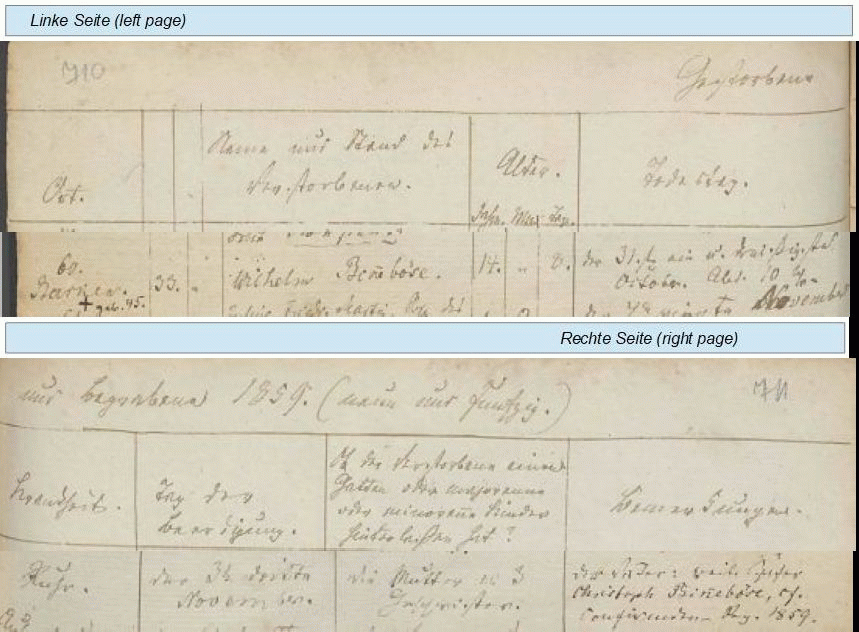 Linke Seite (left page)
710
Gestorbene
Name und Stand des
Verstorbenen.
Alter.
Todestag.
Ort.
Jahr. Mon. Tage.
60.
Barsen.
33. " Wilhelm Bineböse. 14. " 8. der 31ste ein u. dreißigste
October. Abds. 10 Uhr
+ geb. 45.
November
Rechte Seite (right page)
und Begrabene 1859. (neun und fünfzig.)
711
Krankheit.
Tag der
Beerdigung.
Ob der Verstorbene einen
Gatten oder majorenne
oder minorenne Kinder
hinterlassen hat?
Bemerkungen.
Ruhr.
der 3te dritte
November.
die Mutter u. 3
Geschwister.
der Vater: weil.
Christoph Bineböse, cf.
Confirmanden- Reg. 1859.